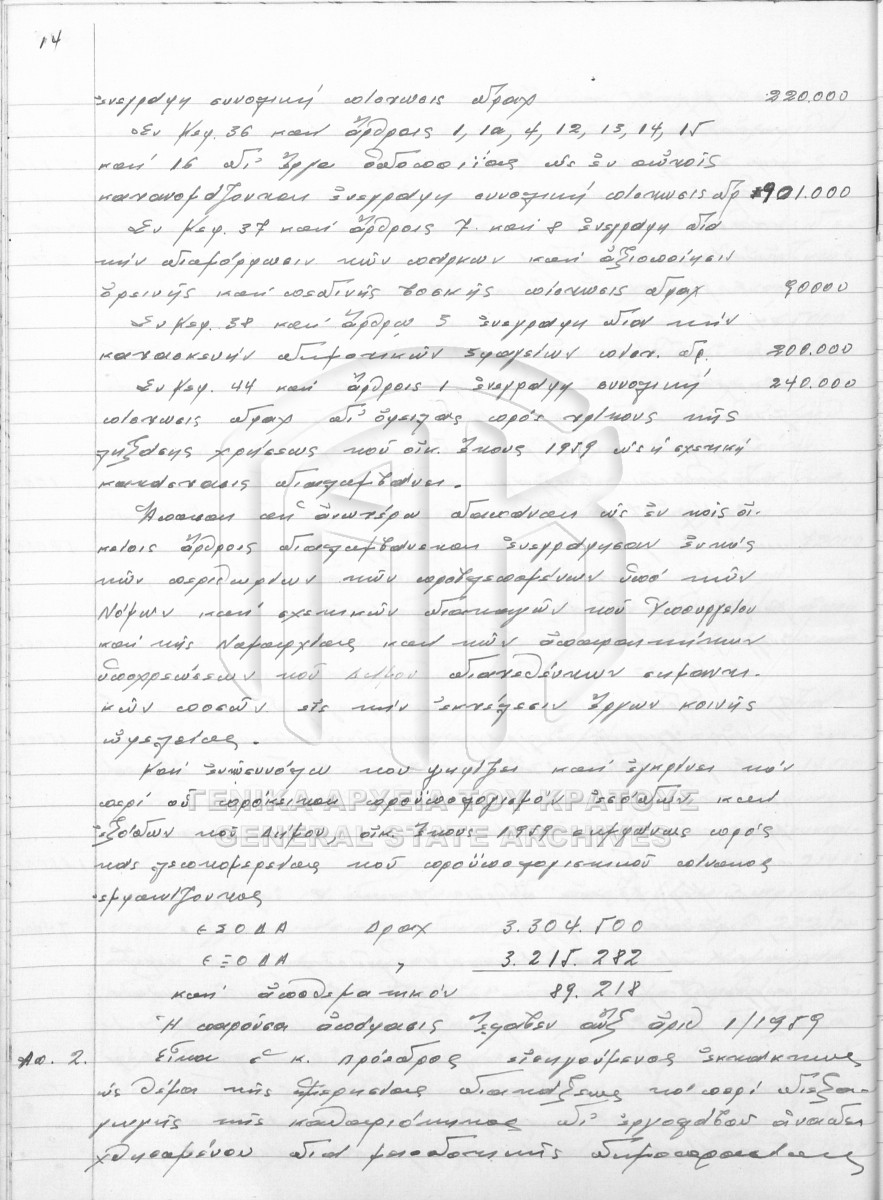 14
ἐνεγράφη συνολική πίστωσις δραχ 220.000
Ἐν Κεφ. 36 καί ἄρθροις 1, 1α, 4, 12, 13, 14, 15
καί 16 δι' ἔργα ὁδοποιΐας ὡς ἐν αὐτοῖς
κατονομάζονται ἐνεγράφη συνολική πίστωσις δρ 901.000
Ἐν Κεφ. 37 καί ἄρθροις 7 καί 8 ἐνεγράφη διά
τήν διαμόρφωσιν τῶν πάρκων καί ἀξιοποίησιν
ὀρεινῆς καί πεδινῆς βοσκῆς πίστωσις δραχ 90000
Ἐν Κεφ. 38 καί ἄρθρω 5 ἐνεγράφη διά τήν
κατασκευήν δημοτικῶν σφαγείων πίστ. δρ. 200.000
Ἐν Κεφ. 44 καί ἄρθροις 1 ἐνεγράφη συνολική 240.000
πίστωσις δραχ δι' ὀφειλάς πρός τρίτους τῆς
ληξάσης χρήσεως τοῦ οἰκ. ἔτους 1959 ὡς ἡ σχετική
κατάστασις διαλαμβάνει.
Ἅπασαι αἱ ἀνωτέρω δαπάναι ὡς ἐν τοῖς οἰ-
κείοις ἄρθροις διαλαμβάνεται ἐνεγράφησαν ἐντός
τῶν περιθωρίων τῶν προβλεπομένων ὑπό τῶν
Νόμων καί σχετικῶν διαταγῶν τοῦ Ὑπουργείου
καί τῆς Νομαρχίας καί τῶν ἀπαραιτήτων
ὑποχρεώσεων τοῦ Δήμου διατεθέντων σημαντι-
κῶν ποσῶν εἰς τήν ἐκτέλεσιν ἔργων κοινῆς
ὠφελείας.
Καί ἐν συνόλω του ψηφίζει καί ἐγκρίνει τόν
περί οὗ πρόκειται προϋπολογισμόν ἐσόδων καί
ἐξόδων τοῦ Δήμου, οἰκ. ἔτους 1959 συμφώνως πρός
τάς λεπτομερείας τοῦ προϋπολογιστικοῦ πίνακος
ἐμφανίζοντας
ΕΣΟΔΑ Δραχ 3.304.500
ΕΞΟΔΑ " 3.215.282
καί ἀποθεματικόν 89.218
Ἡ παροῦσα ἀπόφασις ἔλαβεν αὔξ ἀριθ 1/1959
Απ. 2. Εἶτα ὁ κ. Πρόεδρος εἰσηγούμενος ἐκτάκτως
ὡς θέμα τῆς ἡμερησίας διατάξεως τό περί διεξα-
γωγῆς τῆς καθαριότητος δι' ἐργολάβου ἀναδει
χθησομένου διά μειοδοτικῆς δημοπρασίας
ΓΕΝΙΚΑ ΑΡΧΕΙΑ ΤΟΥ ΚΡΑΤΟΥΣ
GENERAL STATE ARCHIVES